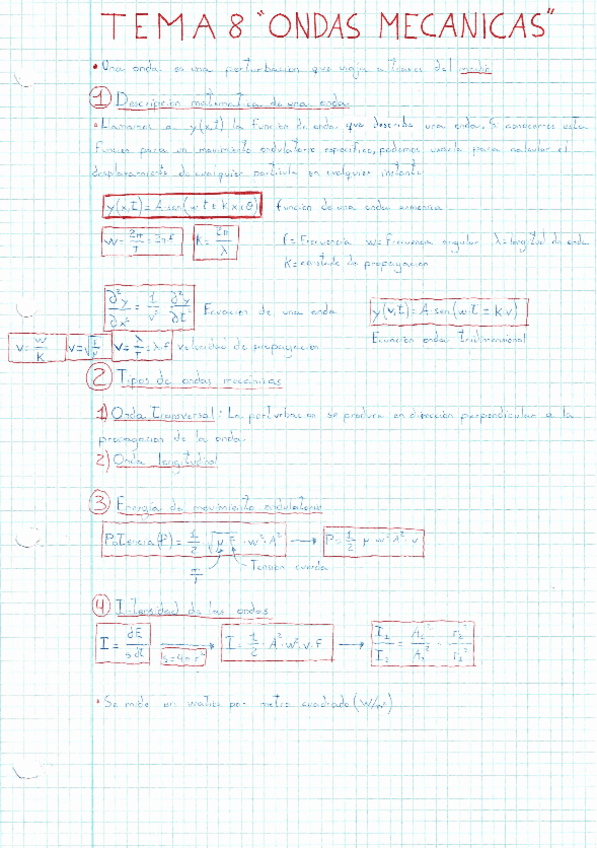 TEMA 8 "ONDAS MECANICAS"
• Una onda es una perturbacion que viaja a traves del medio
1 Descripción matematica de una onda
• Llamamos a y(x,t) la funcion de onda que describe una onda. Si conocemos esta
funcion para un movimiento ondulatorio especifico, podemos usarla para calcular el
desplazamiento de cualquier particula en cualquier instante
y(x,t) = A·sen(wt ± kx + θ) función de una onda armonica
w = 2π/T = 2πf k = 2π/λ f = Frecuencia w = Frecuencia angular λ = longitud de onda
K = constante de propagacion
∂²y/∂x² = 1/v² · ∂²y/∂t² Ecuacion de una onda y(v,t) = A·sen(w·t ± k·v)
v = w/K v = λ/T = λ·f velocidad de propagacion Ecuación onda tridimensional
2 Tipos de ondas mecánicas
1) Onda Transversal: La perturbacion se produce en dirección perpendicular a la
propagacion de la onda
2) Onda longitudinal
3 Energía de movimiento ondulatorio
Potencia(P) = 1/2 √μ·F · w²·A² → P = 1/2 μ·w²·A²·v
Tension cuerda
4 Intensidad de las ondas
I = dE/s·dt → s=4πr² I = 1/2 · A²·w²·v·f → I₁/I₂ = A₁²/A₂² = r₂²/r₁²
• Se mide en watios por metro cuadrado (W/m²)